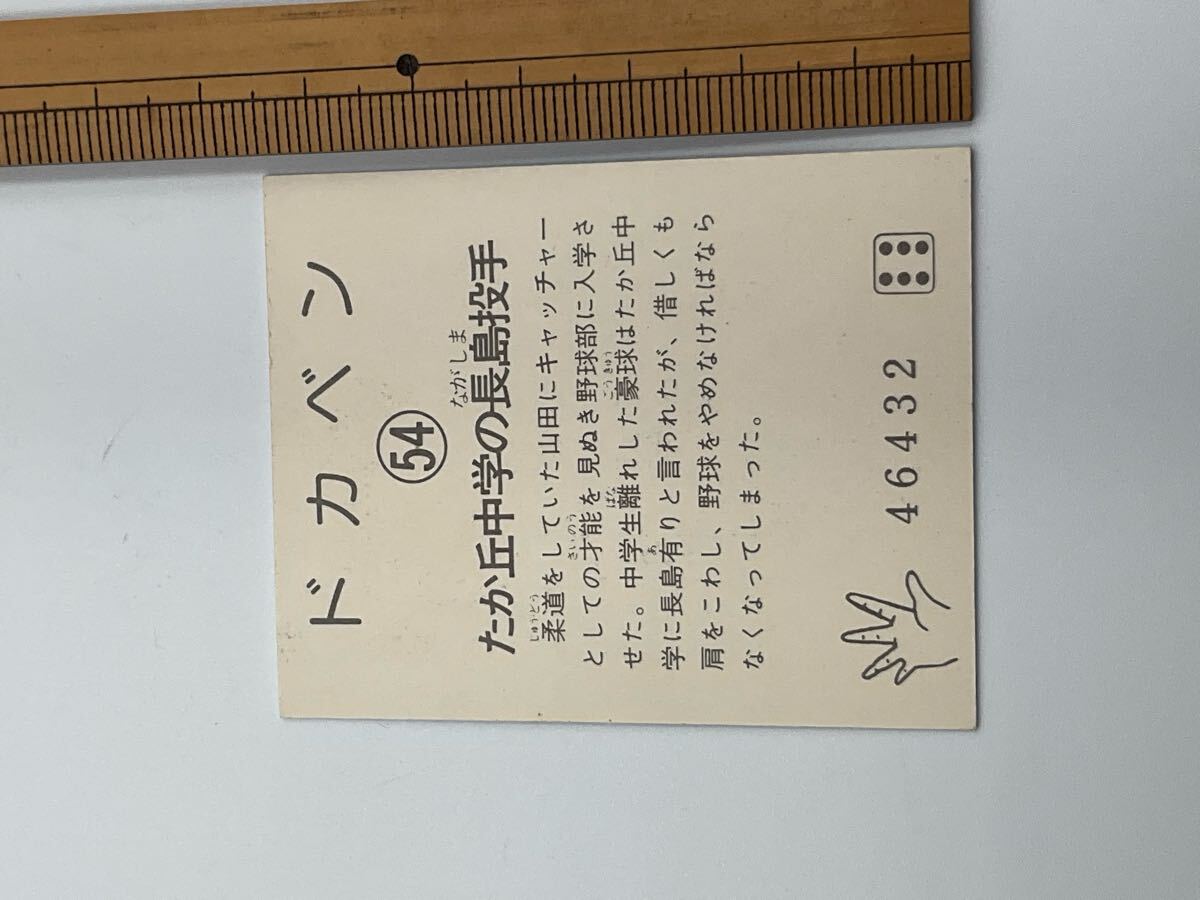 ドカベン
54
たか丘中学の長島投手
ながしま
柔道をしていた山田にキャッチャー
じゅうどう
としての才能を見ぬき野球部に入学さ
さいのう
せた。中学生離れした豪球はたか丘中
ばな ごうきゅう
学に長島有りと言われたが、借しくも
あ
肩をこわし、野球をやめなければなら
なくなってしまった。
46432